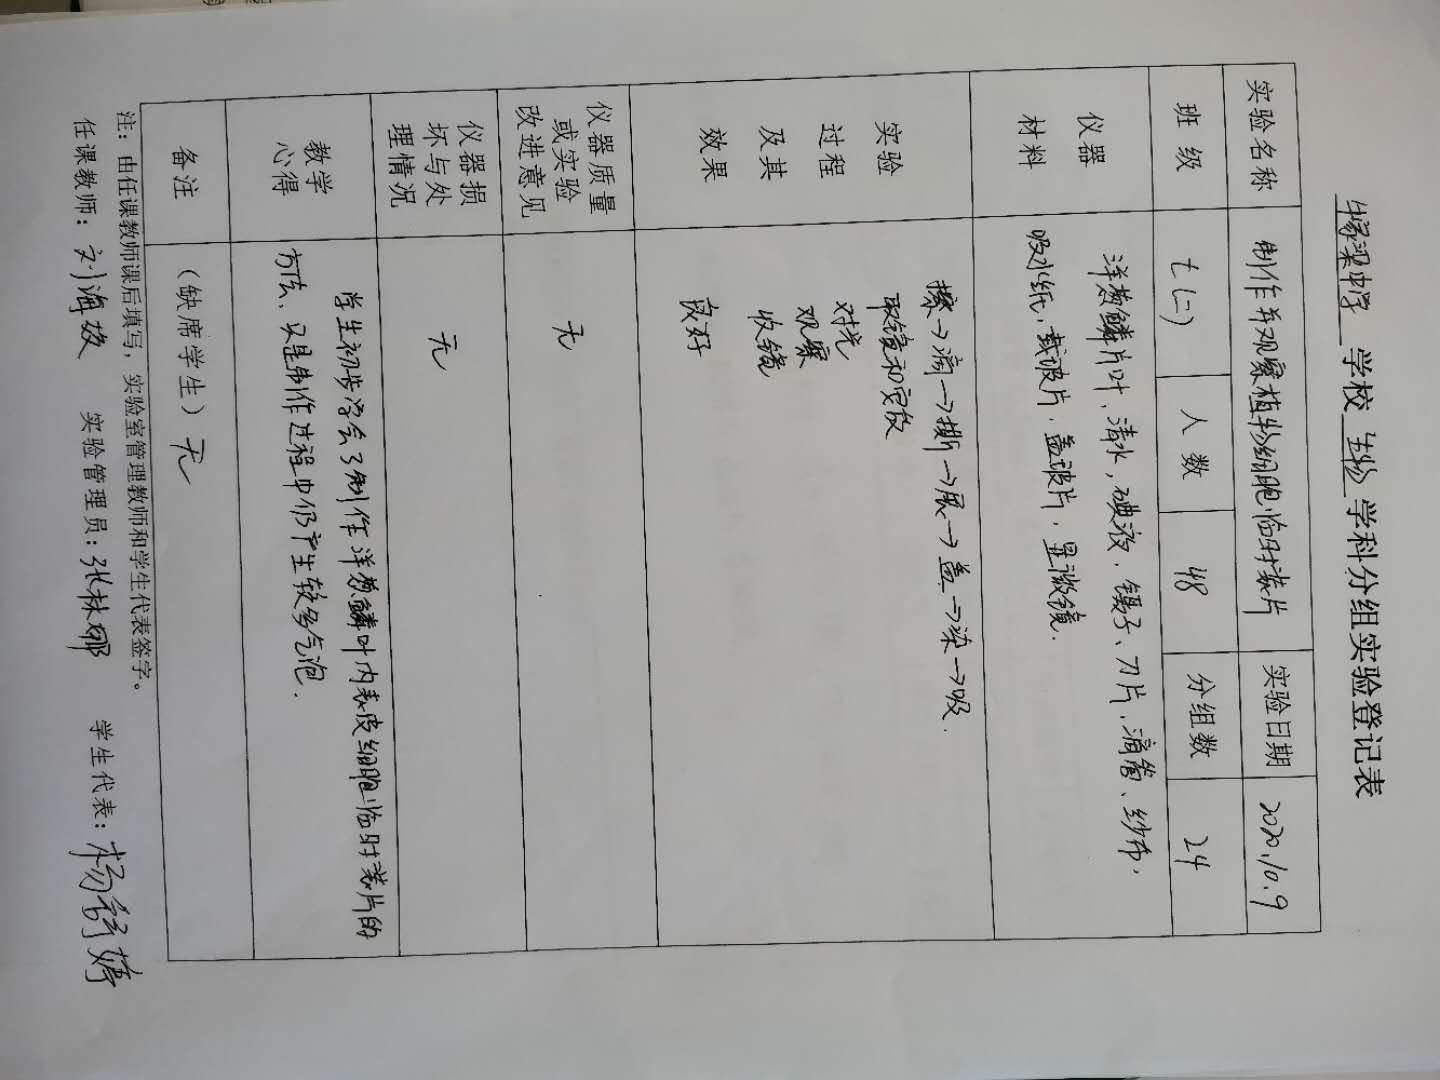 梁中学 学校 生物 学科分组实验登记表
实验名称 制作并观察植物细胞临时装片 实验日期 2020.10.9
班级 七(一) 人数 48 分组数 24
仪器材料
洋葱鳞片叶、清水、碘液、镊子、刀片、滴管、纱布、
吸水纸、载玻片、盖玻片、显微镜.
实验过程及其效果
擦→滴→撕→展→盖→染→吸.
取镜和安放
对光
观察
收镜
良好
仪器质量或实验改进意见 无
仪器损坏与处理情况 无
教学心得
学生初步学会了制作洋葱鳞叶内表皮细胞临时装片的
方法、只是制作过程中仍产生较多气泡.
备注 (缺席学生) 无
注：由任课教师课后填写，实验室管理教师和学生代表签字。
任课教师：刘海 实验管理员：张林娜 学生代表：杨舒婷